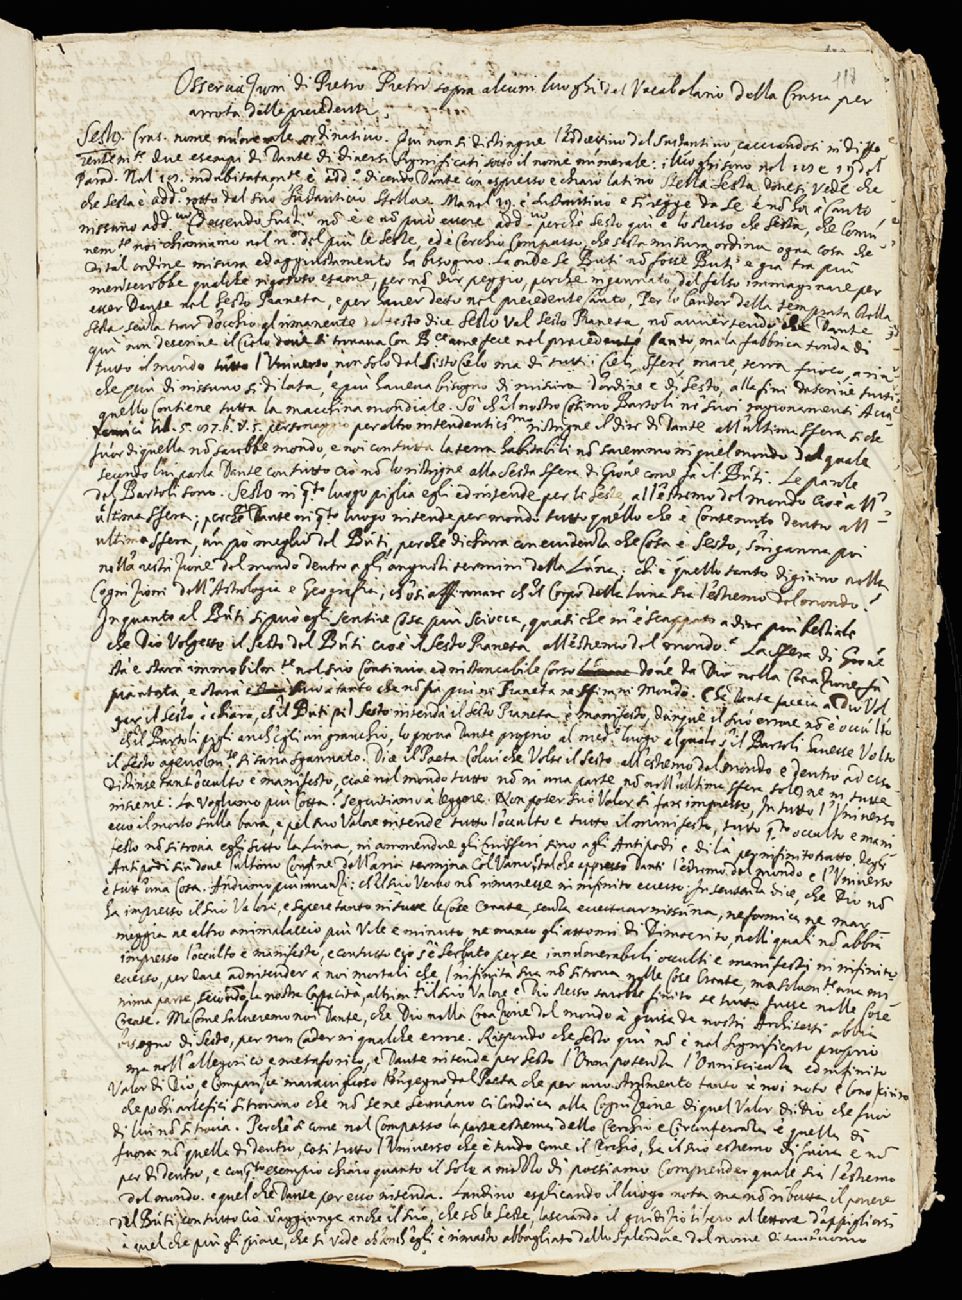 118
Osservazioni di Pietro Pietri sopra alcuni luoghi del Vocabolario della Crusca per
arrota delle precedenti.
Sesto. Crus. nome numerale ordinativo. Qui non si distingue l'Addiettivo dal Sustantivo, cacciandosi indiffe
rentem.te due esempi di Dante di diversi significati, sotto il nome numerale: i luoghi sono nel 18 e 19 del
Parad. Nel 18. indubitatam.te è add.o dicendo Dante con espresso e chiaro latino Stella Sesta dove si vede che
che Sesta è add.o posto dal suo Sustantivo Stella. Ma nel 19. è Sustantivo e si regge da se, e nõ ha a canto
nissuno add.vo Ed essendo Sust.vo nõ è e nõ può essere add.vo perche Sesto qui è lo stesso che Sesta, che comu
nem.te noi chiamiamo nel n.o del più le Seste, ed è Cerchio Compasso, che Sesta misura ordina ogni cosa che
di tal ordine misura ed aggiustamento ha bisogno. Laonde se Buti nõ fosse Buti e già tra più
meriterebbe qualche rigoroso esame, per nõ dir peggio, perche ingannato dal falso immaginare per
esser Dante nel Sesto Pianeta, e per haver detto nel precedente canto, Per lo candor della temprata stella
Sesta, senza trar d'occhio al rimanente del testo dice Sesto Vel Sesto Pianeta, nõ avvertendo che Dante
qui non descrive il Cielo dove si trovava con B.ce come fece nel precedente Canto, ma la fabbrica tonda di
tutto il mondo tutto l'Universo, non solo del Sesto Cielo ma di tutti i Cieli, sfere, mare, terra fuoco, aria
che più di nissuno si dilata, e più haveva bisogno di misura d'ordine e di Sesto, alla fine descrive tutto
quello contiene tutta la macchina mondiale. So che'l nostro Cosimo Bartoli ne' suoi ragionamenti Acca
demici lib. 5. per altro intendentiss.mo ristrigne il dire di Dante all'ultima sfera sì che
fuor di quella nõ sarebbe mondo, e noi con tutta la terra habitabile nõ saremmo in quel mondo del quale
secondo lui parla Dante con tutto ciò nõ lo ristrigne alla Sesta sfera di Giove come fa il Buti. Le parole
del Bartoli sono. Sesto in q.to luogo piglia egli ed intende per le Seste all'estremo del mondo cioè all'
ultima sfera; perche Dante in q.to luogo intende per mondo tutto quello che è contenuto dentro all'
ultima sfera, un po meglio del Buti, perche dichiara con evidenza che cosa è Sesto, s'inganna poi
nella restrizione del mondo dentro agli angusti termini della Luna; chi è quello tanto digiuno nella
Cognizioni dell'Astrologia e Geografia, ch'osi affermare che'l corpo della Luna sia l'estremo del mondo?
In quanto al Buti si può egli sentire cosa più sciocca, quasi che mi è scappato a dire più bestiale
che Dio Volgesse il Sesto del Buti cioè il Sesto Pianeta all'estremo del mondo? La sfera di Giove
stà e starà immobilm.te nel suo continuo ed instancabile corso dove da Dio nella Creazione fù
piantata e starà fino a tanto che nõ sia più ne Pianeta ne sfera ne Mondo. Che Dante faccia a Dio Vol
ger il Sesto è chiaro, che'l Buti p il Sesto intenda il Sesto Pianeta è manifesto, dunque il suo errore nõ è occulto
che'l Bartoli pigli anch'egli un granchio, lo prova Dante proprio al med.o luogo al quale s'il Bartoli havesse Volto
il Sesto agevolm.te si saria sgannato. Dice il Poeta Colui che Volse il Sesto all'estremo del mondo e dentro ad esso
distinse tant'occulto e manifesto, cioè nel mondo tutto nõ in una parte nõ nell'ultima sfera sola ne in tutte
insieme: La Vogliamo più corta? Seguitiamo a leggere. Non poteo suo Valor si fare impresso, In tutto l'Universo
ecco il morto sulla bara, e pel suo Valore intende tutto l'occulto e tutto il manifesto, tutto q.to occulto e mani
festo nõ si trova egli sotto la Luna, in amendue gli Emisferi sino agli Antipodi e di là per infinito tratto, degli
Antipodi sin dove l'ultimo confine dell'aria termina col Vano, talche appresso Dante l'estremo del mondo e l'Universo
è tutt'una cosa. Andiamo più innanzi: che'l suo Verbo nõ rimanesse in infinito eccesso. In sustanza dice, che Dio nõ
ha impresso il suo Valore, e sapere tanto in tutte le cose create, senza eccettuar nissuna, ne formica ne mar
meggia ne altro animalaccio più vile e minuto ne manco gli attomi di Dimocrito, nelli quali nõ abbia
impresso l'occulto e manifesto, e con tutto ciò s'è serbato per se innumerabili occulti e manifesti in infinito
eccesso, per dare ad intender a noi mortali che l'infinità sua nõ si trova nelle cose create, ma solam.te una mi
nima parte, secondo la nostra capacità, altrim.ti il suo Valore e Dio stesso sarebbe finito se tutto fusse nelle cose
create. Ma come salveremo noi Dante, che Dio nella Creazione del mondo à guisa de nostri Architetti abbia
bisogno di Sesto, per non cader in qualche errore. Rispondo che Sesto qui nõ è nel significato proprio
ma nell'allegorico e metaforico, e Dante intende per Sesto l'Onnipotenza l'Onniscienza ed infinito
Valor di Dio, e Comparaz.e maravigliosa l'ingegno del Poeta che per uno strumento tanto a noi noto
che pochi artefici si trovano che nõ se ne servano ci conduca alla Cognizione di quel Valor di Dio che fuor
di lui nõ si trova. Perche sì come nel Compasso la parte estrema dello Cerchio e Circonferenza è quella di
fuora nõ quella di dentro, così tutto l'Universo che è tondo come il Cerchio, ha il suo estremo di fuora e nõ
per di dentro, e con q.to esempio chiaro quanto il Sole a mezzo dì possiamo comprender quale sia l'estremo
del mondo. e quel che Dante per esso intenda. Landino esplicando il luogo nota ma nõ ributta il parere
del Buti, con tutto ciò v'aggiunge anche il suo, che sõ le Seste, lasciando il giudizio libero al lettore d'appigliarsi
a quel che più gli piace, che si vede ch'anch'egli è rimasto abbagliato dallo splendore del nome di tant'uomo